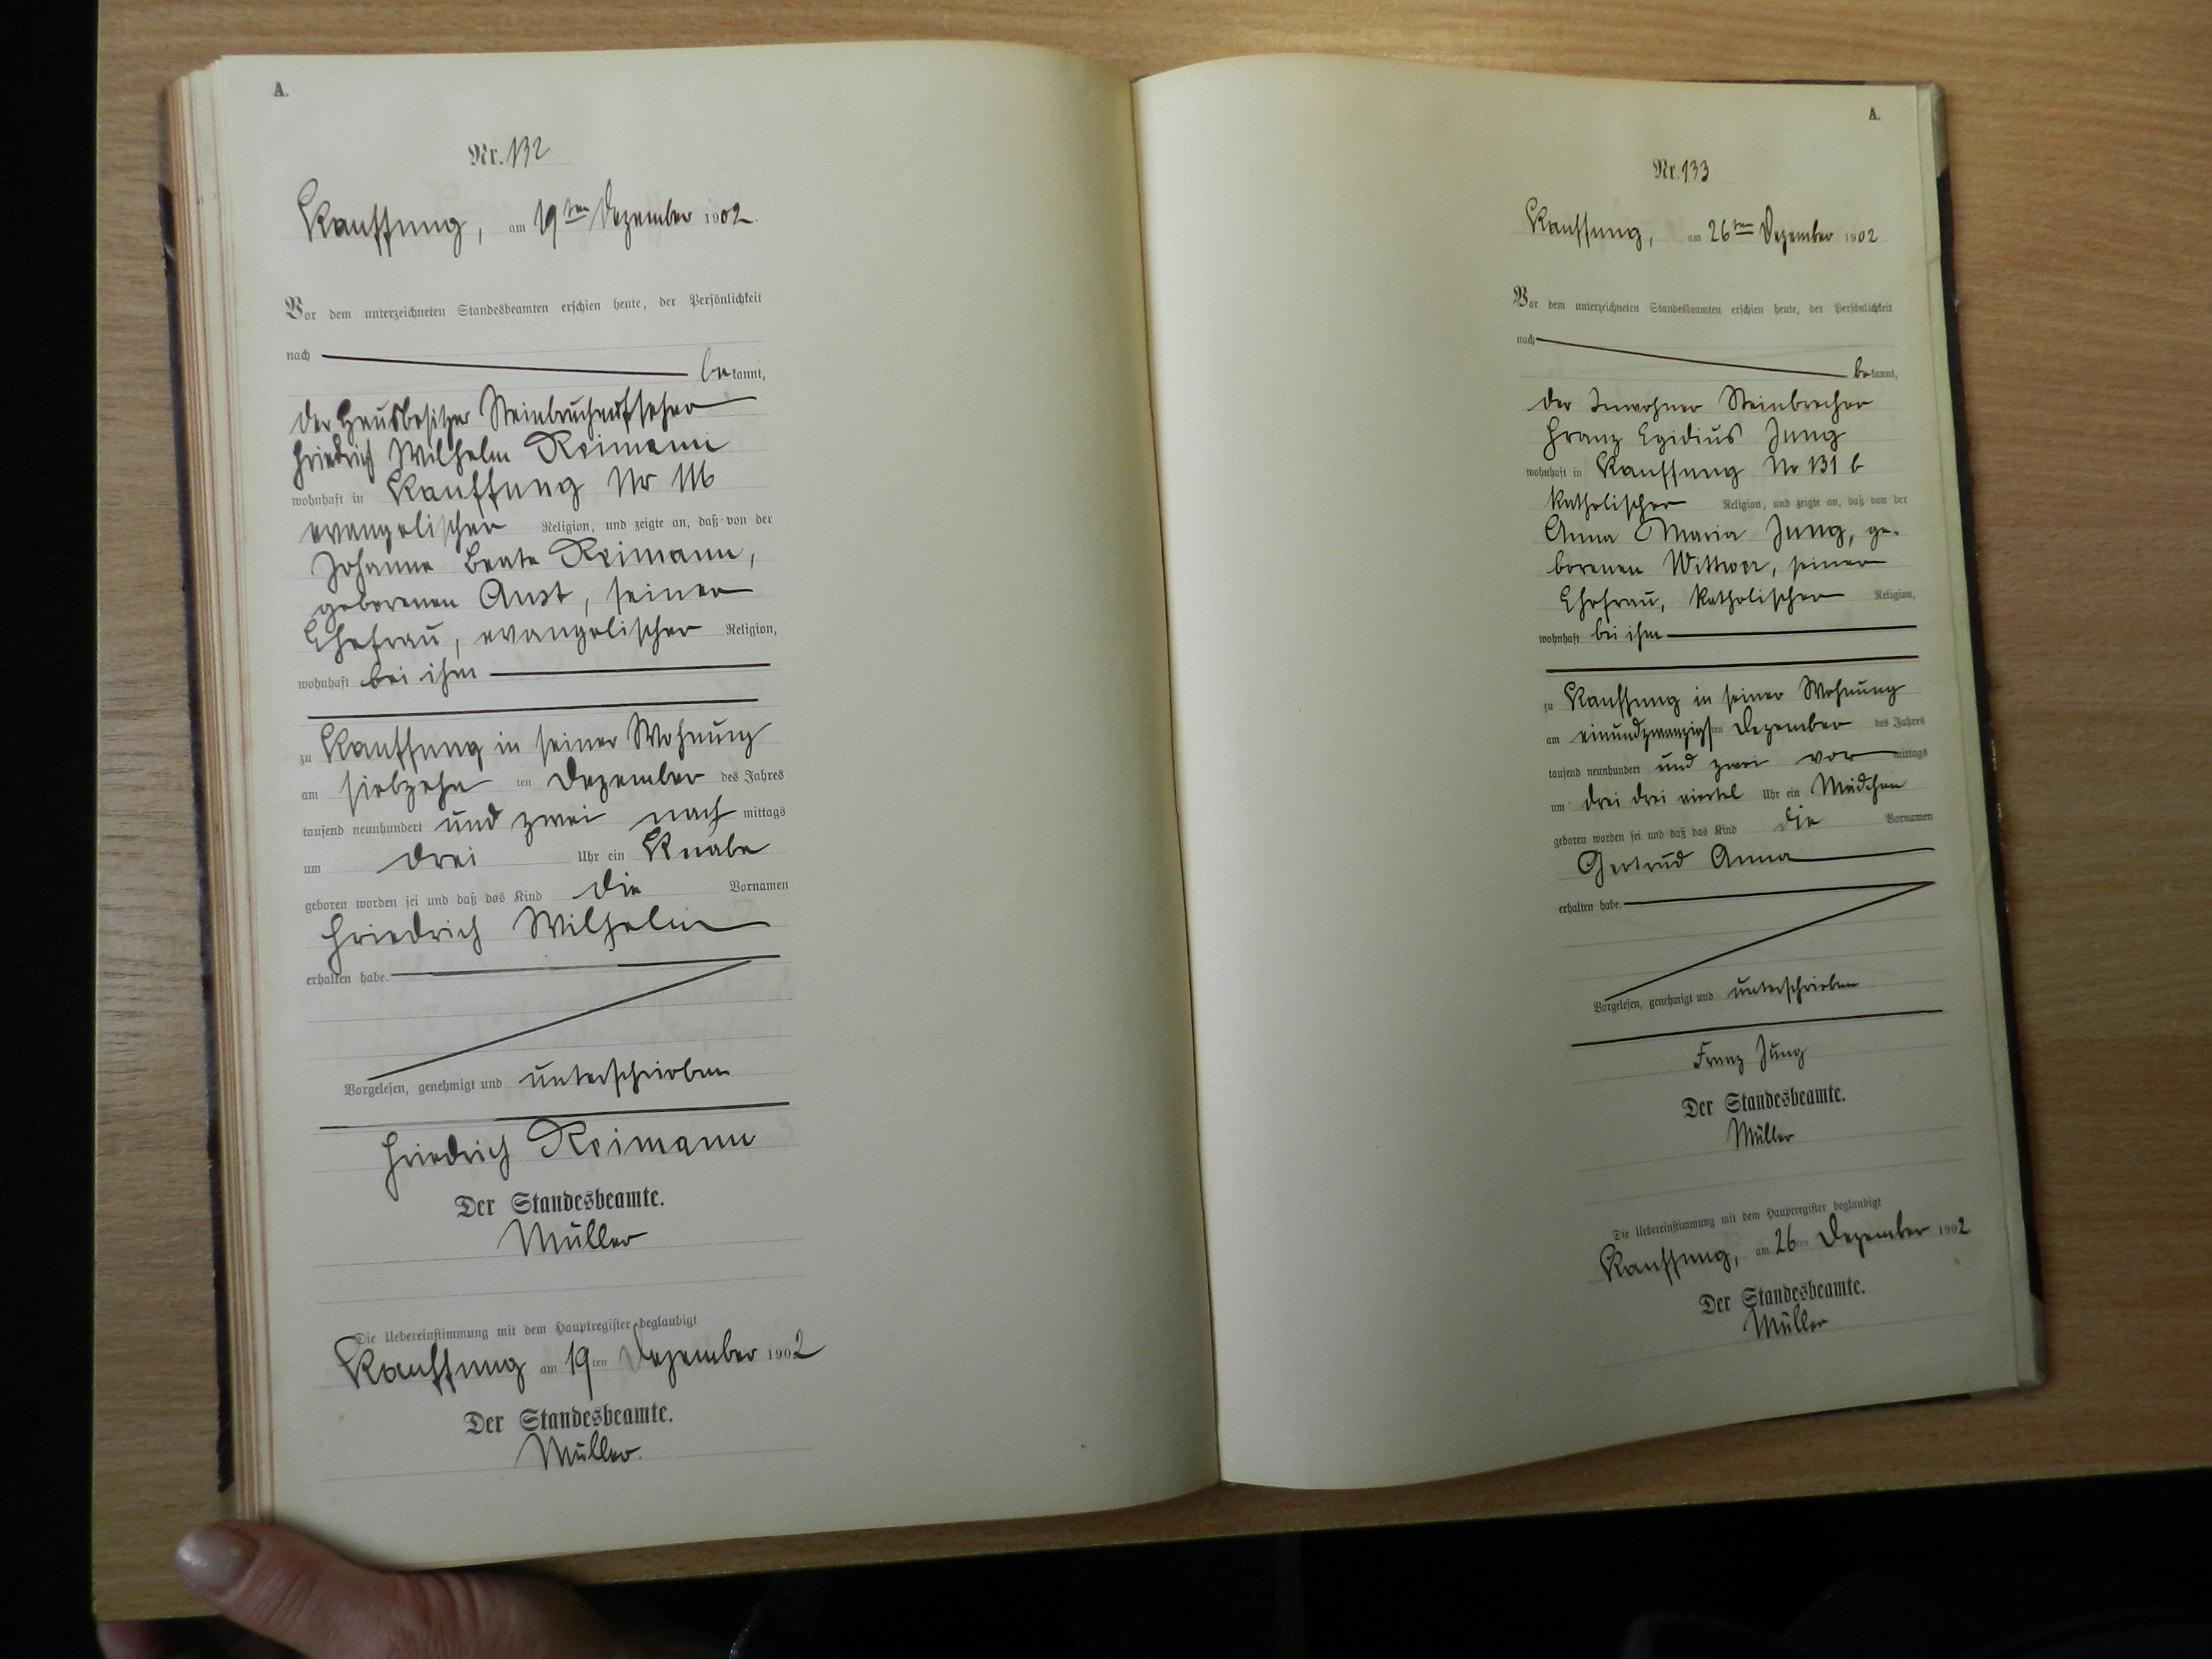 A.
Nr. 132
Kauffung, am 19ten Dezember 1902.
Vor dem unterzeichneten Standesbeamten erschien heute, der Persönlichkeit
nach
bekannt,
der Hausbesitzer Steinbruchaufseher
Friedrich Wilhelm Reimann
wohnhaft in Kauffung Nr 116
evangelischer Religion, und zeigte an, daß von der
Johanne Beate Reimann,
geborenen Aust, seiner
Ehefrau, evangelischer Religion,
wohnhaft bei ihm
zu Kauffung in seiner Wohnung
am siebzehn ten Dezember des Jahres
tausend neunhundert und zwei nach mittags
um drei Uhr ein Knabe
geboren worden sei und daß das Kind die Vornamen
Friedrich Wilhelm
erhalten habe.
Vorgelesen, genehmigt und unterschrieben
Friedrich Reimann
Der Standesbeamte.
Müller
Die Uebereinstimmung mit dem Hauptregister beglaubigt
Kauffung am 19ten Dezember 1902
Der Standesbeamte.
Müller.
A.
Nr. 133
Kauffung, am 26ten Dezember 1902.
Vor dem unterzeichneten Standesbeamten erschien heute, der Persönlichkeit
nach
bekannt,
der Inwohner Steinbrecher
Franz Egidius Jung
wohnhaft in Kauffung Nr 131 b
katholischer Religion, und zeigte an, daß von der
Anna Maria Jung, ge-
borenen Wittwer, seiner
Ehefrau, katholischer Religion,
wohnhaft bei ihm
zu Kauffung in seiner Wohnung
am einundzwanzigsten Dezember des Jahres
tausend neunhundert und zwei vor mittags
um drei drei viertel Uhr ein Mädchen
geboren worden sei und daß das Kind die Vornamen
Gertrud Anna
erhalten habe.
Vorgelesen, genehmigt und unterschrieben
Franz Jung
Der Standesbeamte.
Müller
Die Uebereinstimmung mit dem Hauptregister beglaubigt
Kauffung, am 26ten Dezember 1902
Der Standesbeamte.
Müller